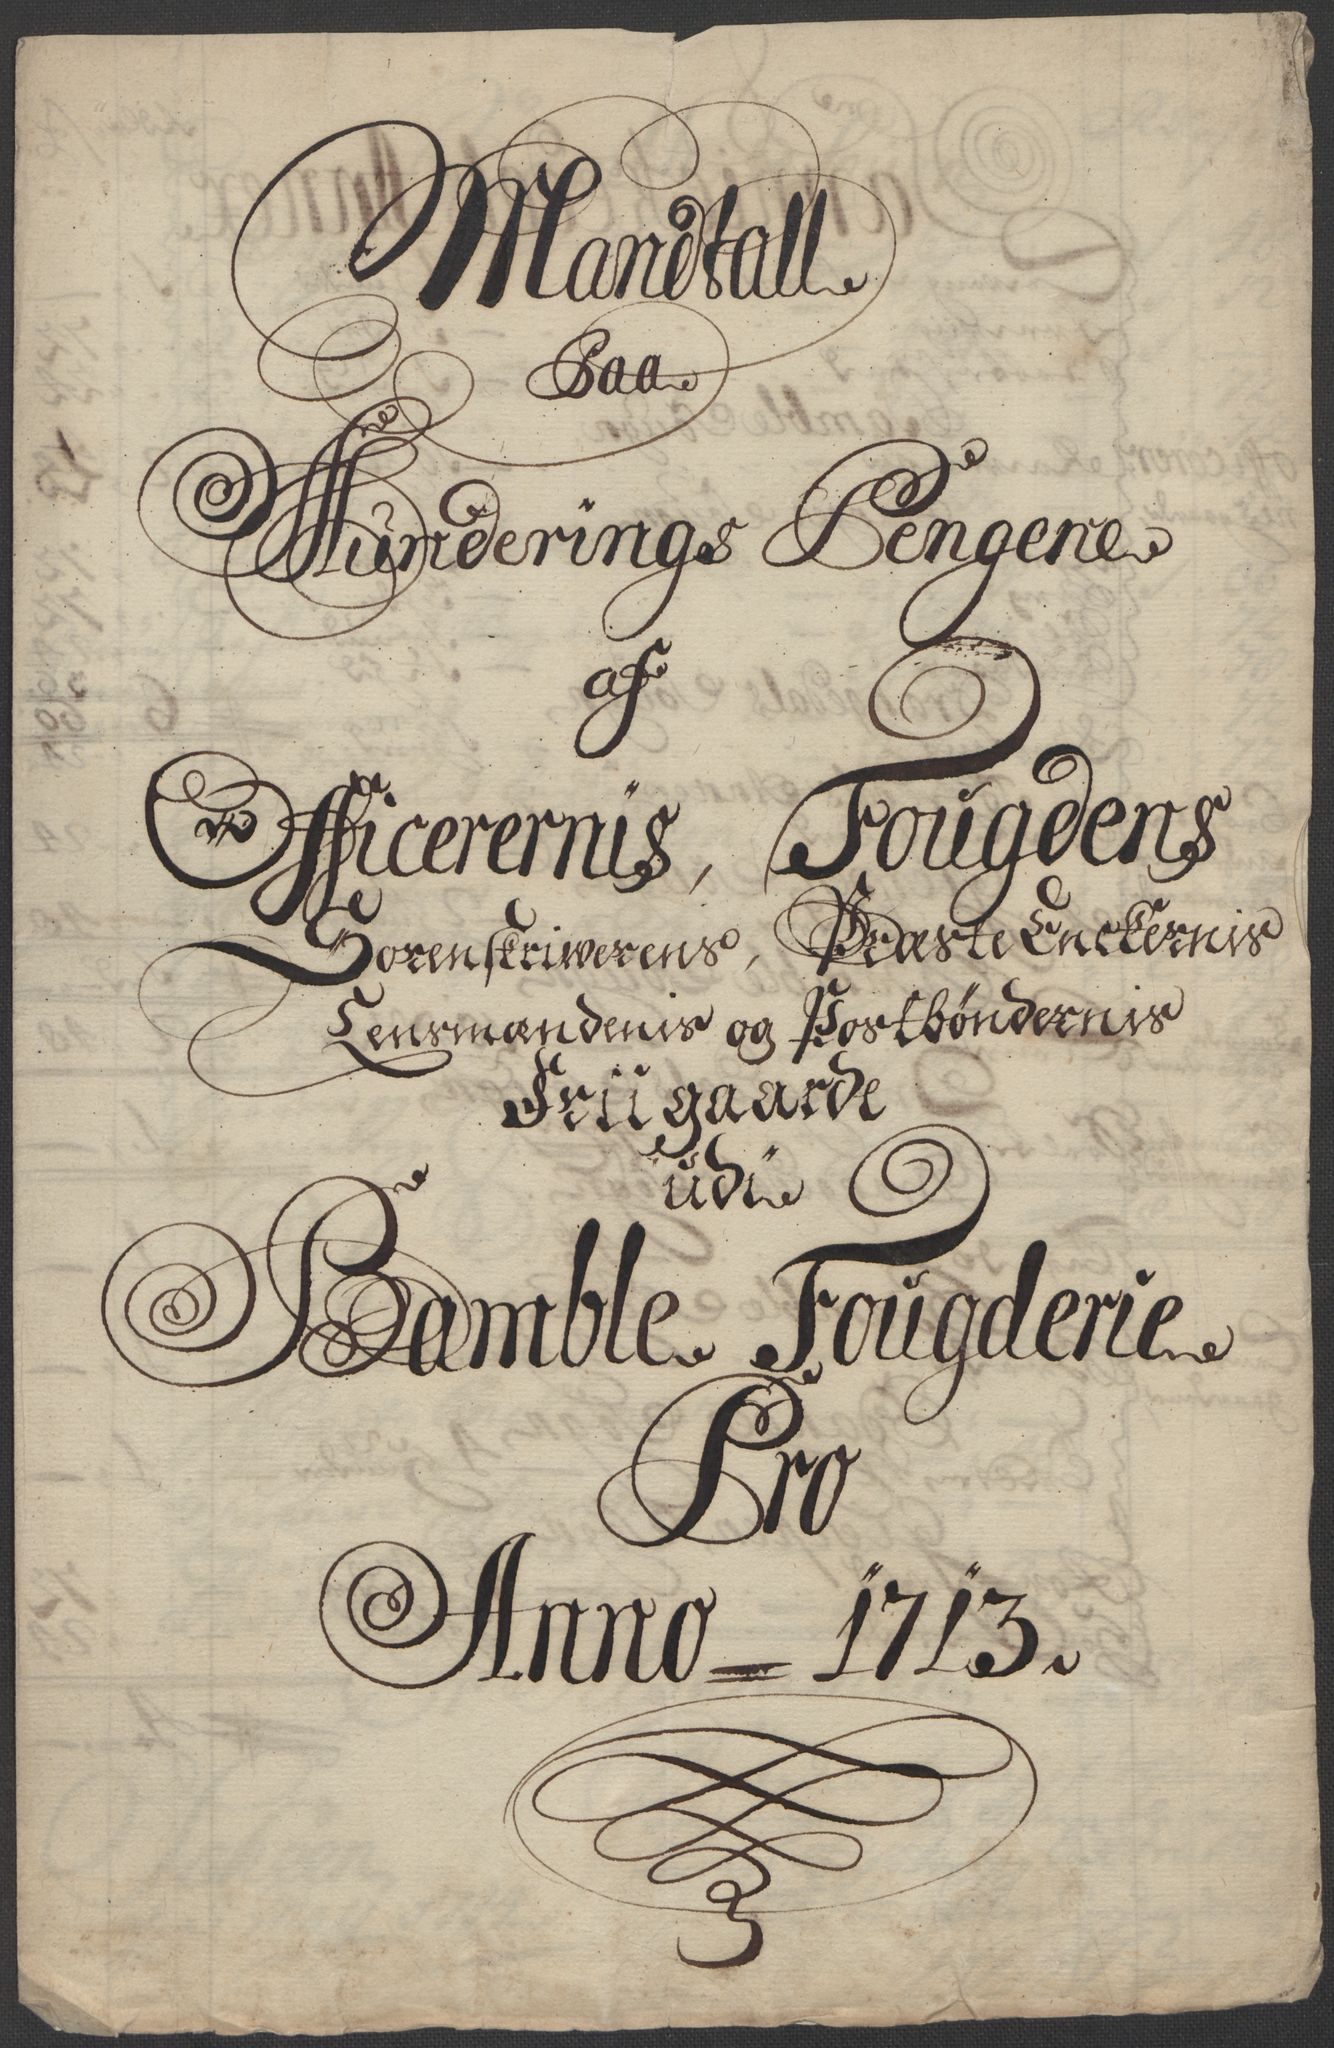 Mandtall
Paa
Munderings Pengene
af
Officerernis, Fougdens
Sorenskriwerens, Præste Enckernis
Lensmændenis og Postbøndernis
Frii gaarde
udi
Bamble Fougderie
Pro
Anno = 1713.